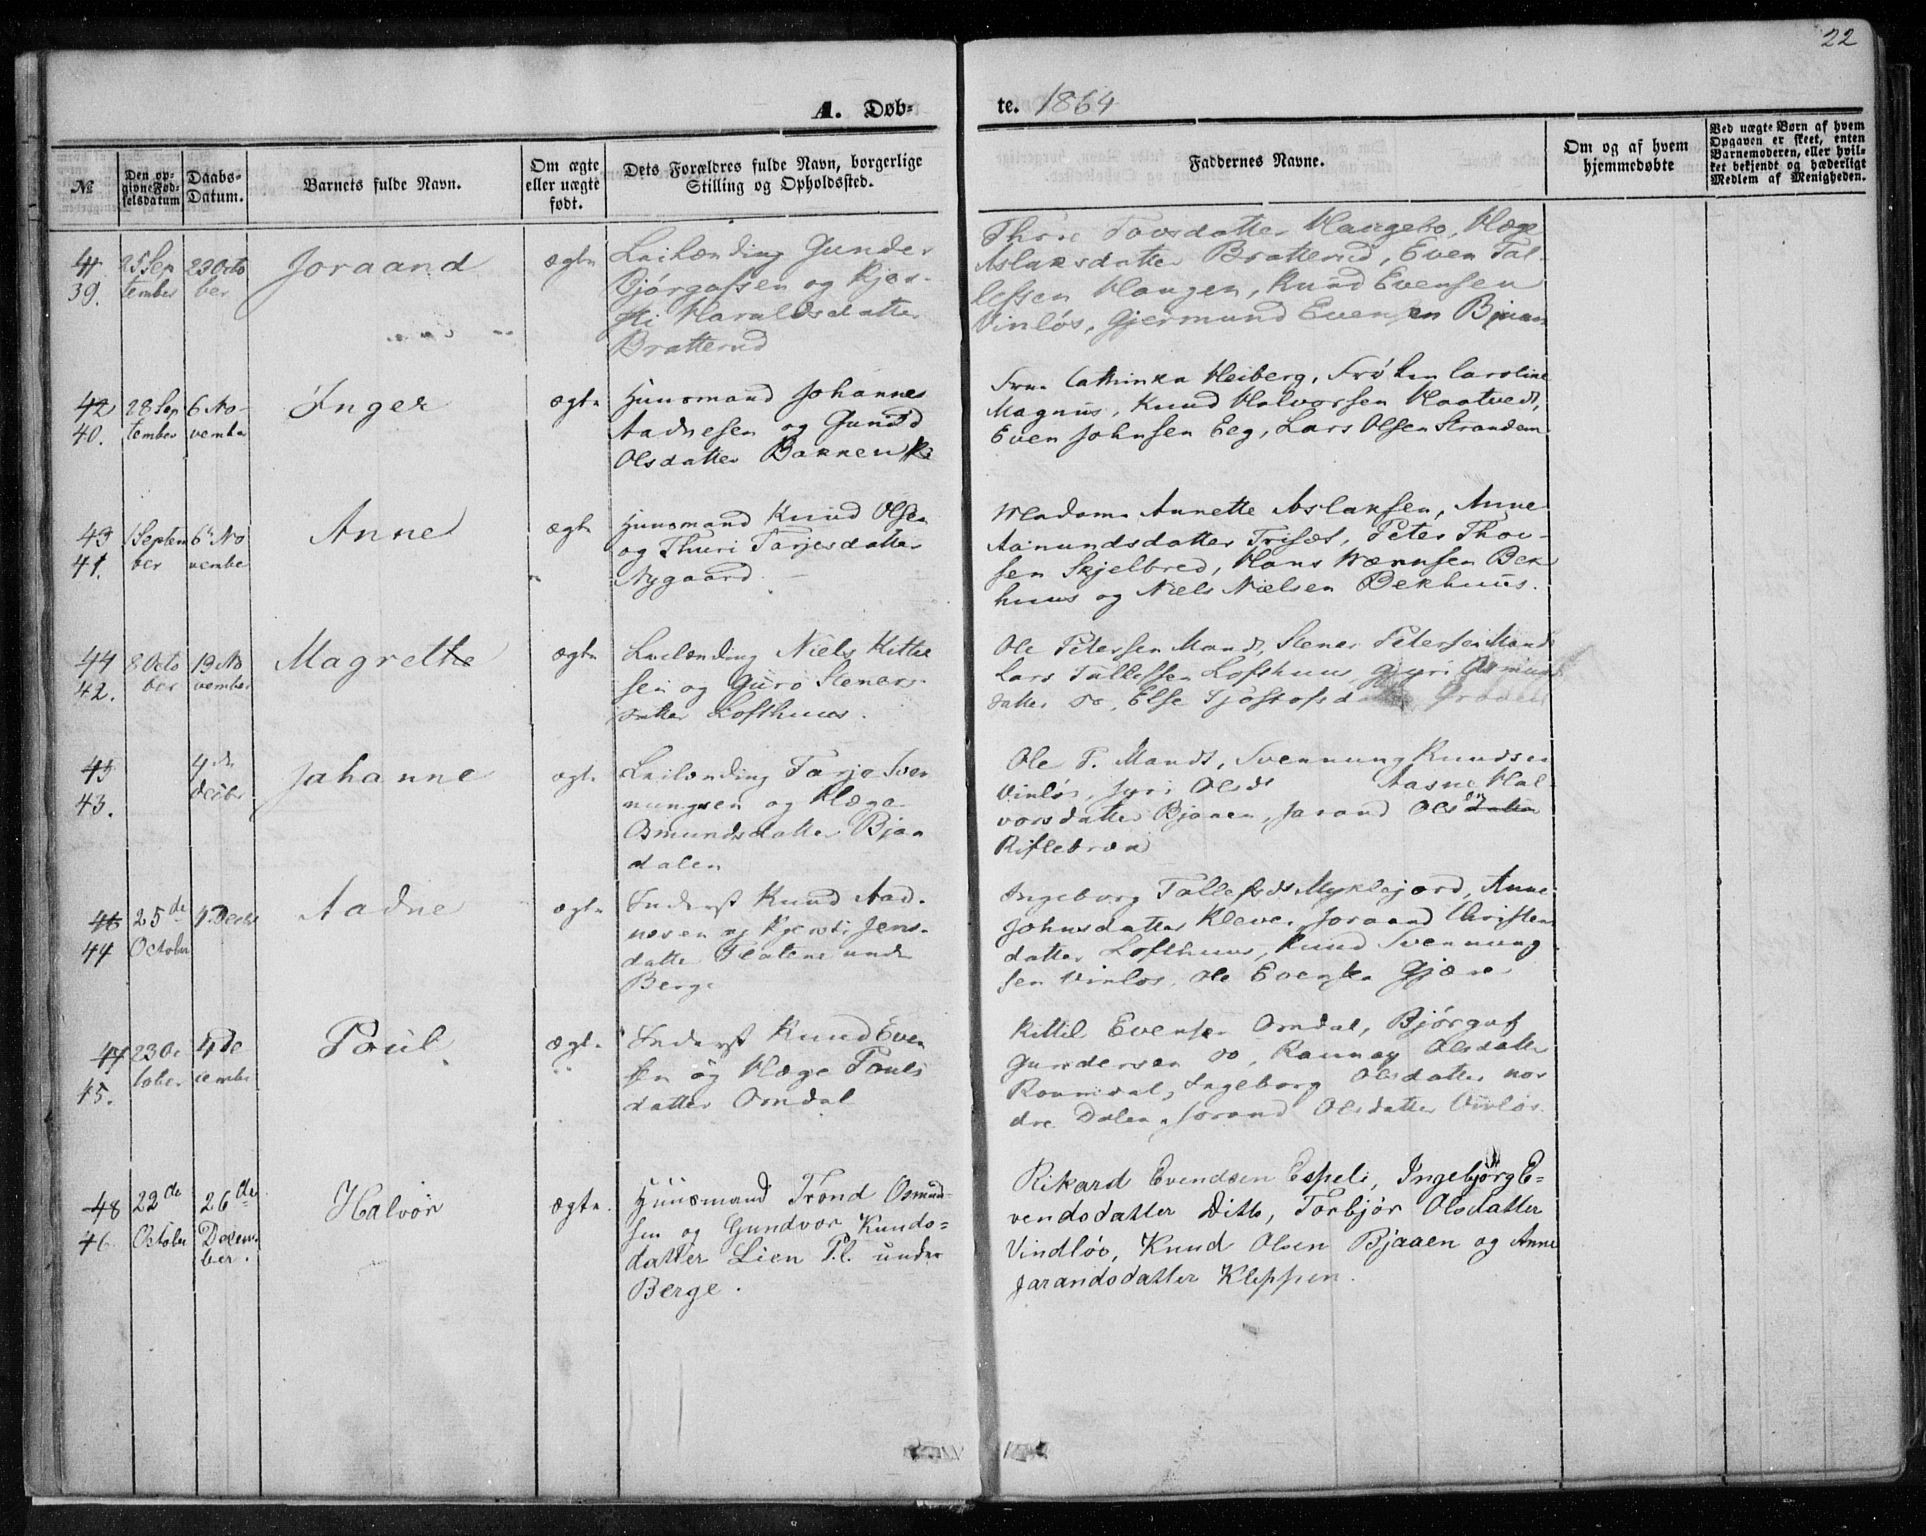 22
A. Døb-
te. 1864
№
Den op-
givne Fød-
selsdatum
Daabs-
Datum.
Barnets fulde Navn.
Om ægte
eller uægte
født.
Dets Forældres fulde Navn, borgerlige
Stilling og Opholdssted.
Faddernes Navne.
Om og af hvem
hjemmedøbte
Ved uægte Børn af hvem
Opgaven er skeet, enten
Barnemoderen, eller hvil-
ket bekjendt og hæderligt
Medlem af Menigheden.
41
39.
25 Sep
tember
23 Octo
ber
Joraand
ægte
Leilænding Gunder
Bjørgofsen og Kjer-
sti Haraldsdatter
Bratterud
Tovsdatter Haugebo, Hæge
Aslaksdatter Bratterud, Even Tal-
lefsen Haugen, Knud Evensen
Vinløs, Gjermund Evensen Bjaaen
42
40.
28 Sep
tember
6 No-
vember
Inger
ægte
Huusmand Johannes
Aadnesen og Gunild
Olsdatter Bakken
Frue Cathinka Heiberg, Frøken Caroline
Magnus, Knud Halvorsen Haatvedt,
Even Johnsen Eeg, Lars Olsen Strandem
43
41.
1 Septem
ber
6 No
vembe
Anne
ægte
Huusmand Knud Olsen
og Thuri Tarjesdatter
Nygaard.
Madame Annette Aslaksen, Anne
Aamundsdatter Trisæt, Peter Thor-
sen Skjelbred, Hans Bek
huus og Niels Nielsen Bekhuus.
44
42.
8 Octo
ber
13 No
vember
Magrethe
ægte
Leilænding Niels Kittel
sen og Guro Steners-
datter Lofthuus.
Ole Petersen Mandt, Stener Petersen Mandt
Lars Tallefsen Lofthuus, Gyri
datter do, Else Tjostofsd
45
43.
4de
Decbr
Johanne
ægte
Leilænding Tarje Sven
nungsen og Hæge
Osmundsdatter Bjaa
dalen
Ole P. Mandt, Svennung Knudsen
Vinløs, Gyri Olsdt Aasne Hal-
vorsdatter Bjaaen, Jarand Olsdatter
Riflebræn
46
44
25de
October
4 Decbr
Aadne
ægte
Inderst Knud Aad-
nesen og Kjersti Jens-
datter Flatene under
Berge
Ingeborg Tallefsdt Myklejord, Anne
Johnsdatter Kleve, Joraand Christens
datter Lofthuus, Knud Svennung
sen Vinløs, Ole Evensen Gjære
47
45.
23 Oc
tober
4 De
cember
Poul
ægte
Inderst Knud Even
sen og Hæge Pouls
datter Omdal
Kittil Evensen Omdal, Bjørguf
Gundersen do, Rannog Olsdatter
Raamdal, Ingeborg Olsdatter nor
dre Dalen, Jorand Olsdatter Vinløs
48
46
22de
October
26de
Decem-
ber.
Halvor
ægte.
Huusmand Trond Osmund-
sen og Gundvor Knuds=
datter Lien Pl. under
Berge.
Rikard Evendsen Espeli, Ingebjørg E=
vendsdatter Ditto, Torbjør Olsdatter
Vindløs, Knud Olsen Bjaaen og Anne
Jarandsdatter Kleppen.